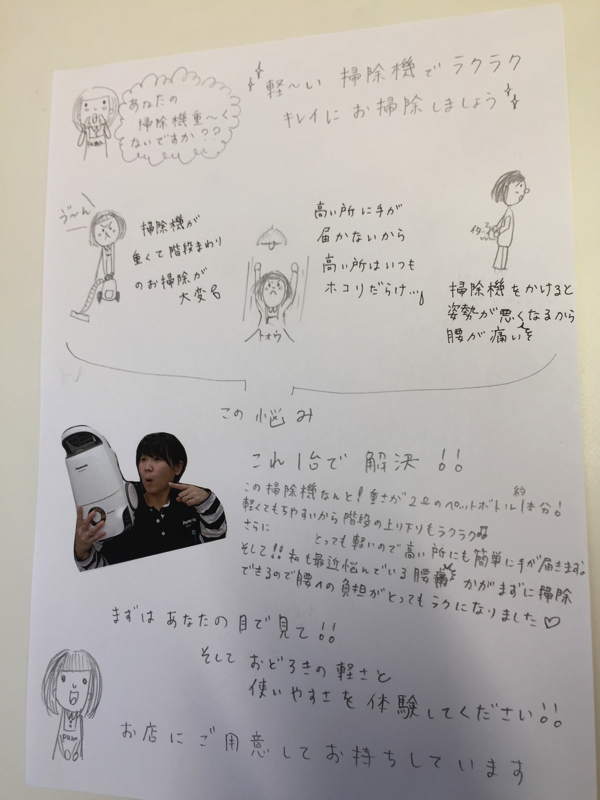 軽〜い 掃除機で ラクラク
キレイに お掃除しましょう
あなたの
掃除機重〜く
ないですか??
う〜ん
掃除機が
重くて階段まわり
のお掃除が
大変
高い所に手が
届かないから
高い所はいつも
ホコリだらけ…
トォゥ
イタタ
掃除機をかけると
姿勢が悪くなるから
腰が痛い
この悩み
これ1台で解決!!
Panasonic
この掃除機なんと!重さが2ℓのペットボトル約1本分!
軽くてもちやすいから階段の上り下りもラクラク♫
さらに とっても軽いので高い所にも簡単に手が届きます。
そして!!私も最近悩んでいる腰痛 かがまずに掃除
できるので腰への負担がとってもラクになりました♡
まずはあなたの目で見て!!
そしておどろきの軽さと
使いやすさを体験してください!!
お店にご用意してお待ちしています